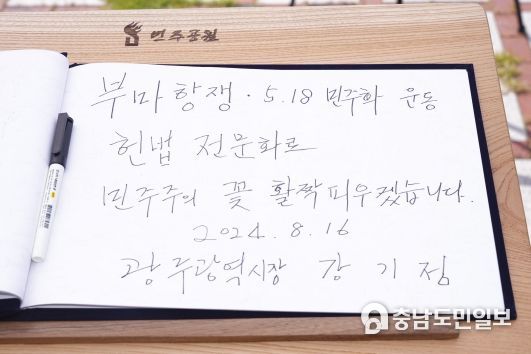 민주공원
부마항쟁 · 5.18 민주화 운동
헌법 전문화로
민주주의 꽃 활짝 피우겠습니다.
2024. 8. 16
광주광역시장 강기정
충남도민일보